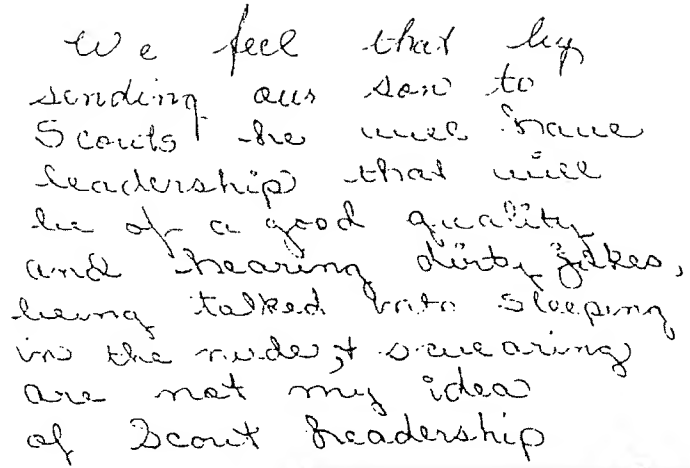 We feel that by
sending our son to
Scouts he will have
leadership that will
be of a good quality
and hearing dirty jokes,
being talked into sleeping
in the nude, & swearing
are not my idea
of Scout Leadership